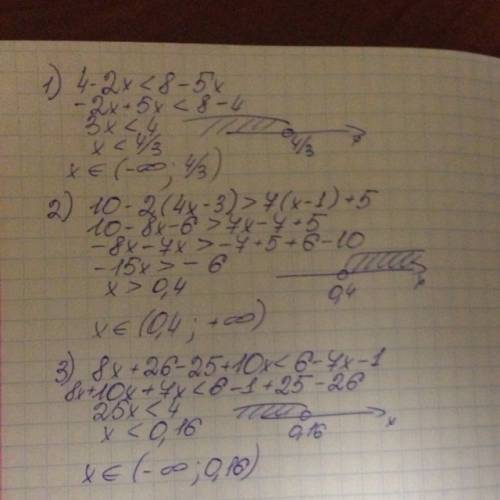 1) 4-2x<8-5x
-2x+5x<8-4
3x<4
x<4/3
4/3
x∈(-∞; 4/3)
2) 10-2(4x-3)>7(x-1)+5
10-8x-6>7x-7+5
-8x-7x>-7+5+6-10
-15x>-6
x>0,4
0,4
x∈(0,4; +∞)
3) 8x+26-25+10x<6-7x-1
8x+10x+7x<6-1+25-26
25x<4
x<0,16
0,16
x
x∈(-∞; 0,16)